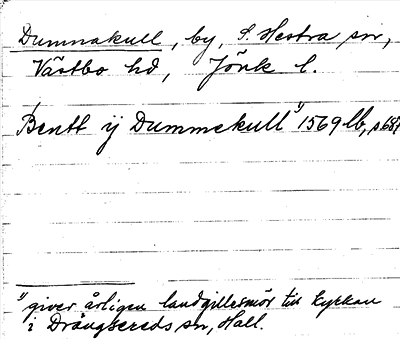 Dumnakull, by, S. Hestra sn,
Västbo hd, Jönk l.
Bentt ij Dummekull 1) 1569 lb, s. 68
1) giver årligen landgillesmör till kyrkan
i Drängsereds sn, Hall.